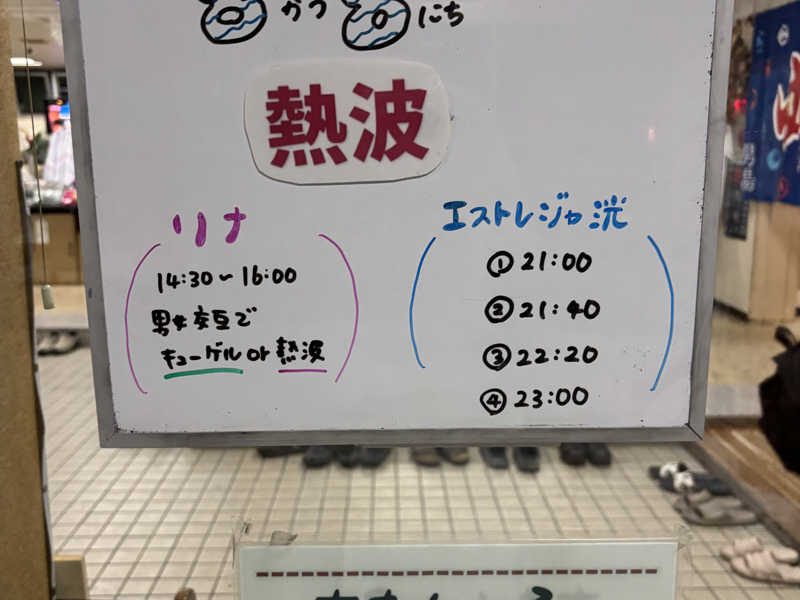 がつ にち
熱波
リナ
14:30~16:00
男女交互で
キューゲル or 熱波
エストレジャ洸
① 21:00
② 21:40
③ 22:20
④ 23:00